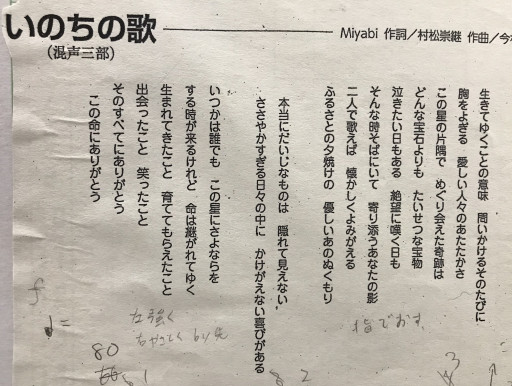 いのちの歌
(混声三部)
Miyabi 作詞／村松崇継 作曲／今
生きてゆくことの意味 問いかけるそのたびに
胸をよぎる 愛しい人々のあたたかさ
この星の片隅で めぐり会えた奇跡は
どんな宝石よりも たいせつな宝物
泣きたい日もある 絶望に嘆く日も
そんな時そばにいて 寄り添うあなたの影
二人で歌えば 懐かしくよみがえる
ふるさとの夕焼けの 優しいあのぬくもり
本当にだいじなものは 隠れて見えない
ささやかすぎる日々の中に かけがえない喜びがある
いつかは誰でも この星にさよならを
する時が来るけれど 命は継がれてゆく
生まれてきたこと 育ててもらえたこと
出会ったこと 笑ったこと
そのすべてにありがとう
この命にありがとう
f
♩=
80
左強く
指でおす
1
2
3